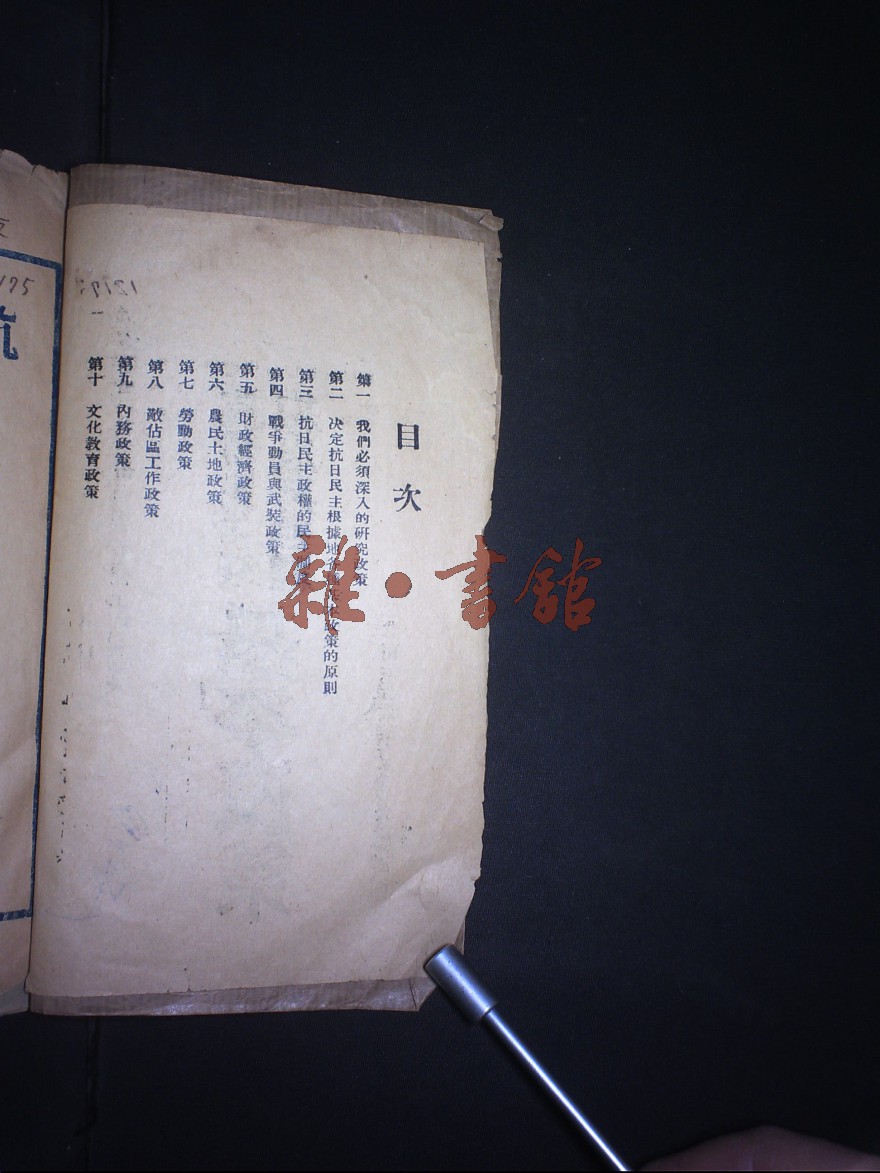 目次
第一 我們必須深入的研究政策
第二 決定抗日民主根據地各種基本政策的原則
第三 抗日民主政權的民主制度
第四 戰爭動員與武裝政策
第五 財政經濟政策
第六 農民土地政策
第七 勞動政策
第八 敵佔區工作政策
第九 內務政策
第十 文化教育政策
雜·書館
175